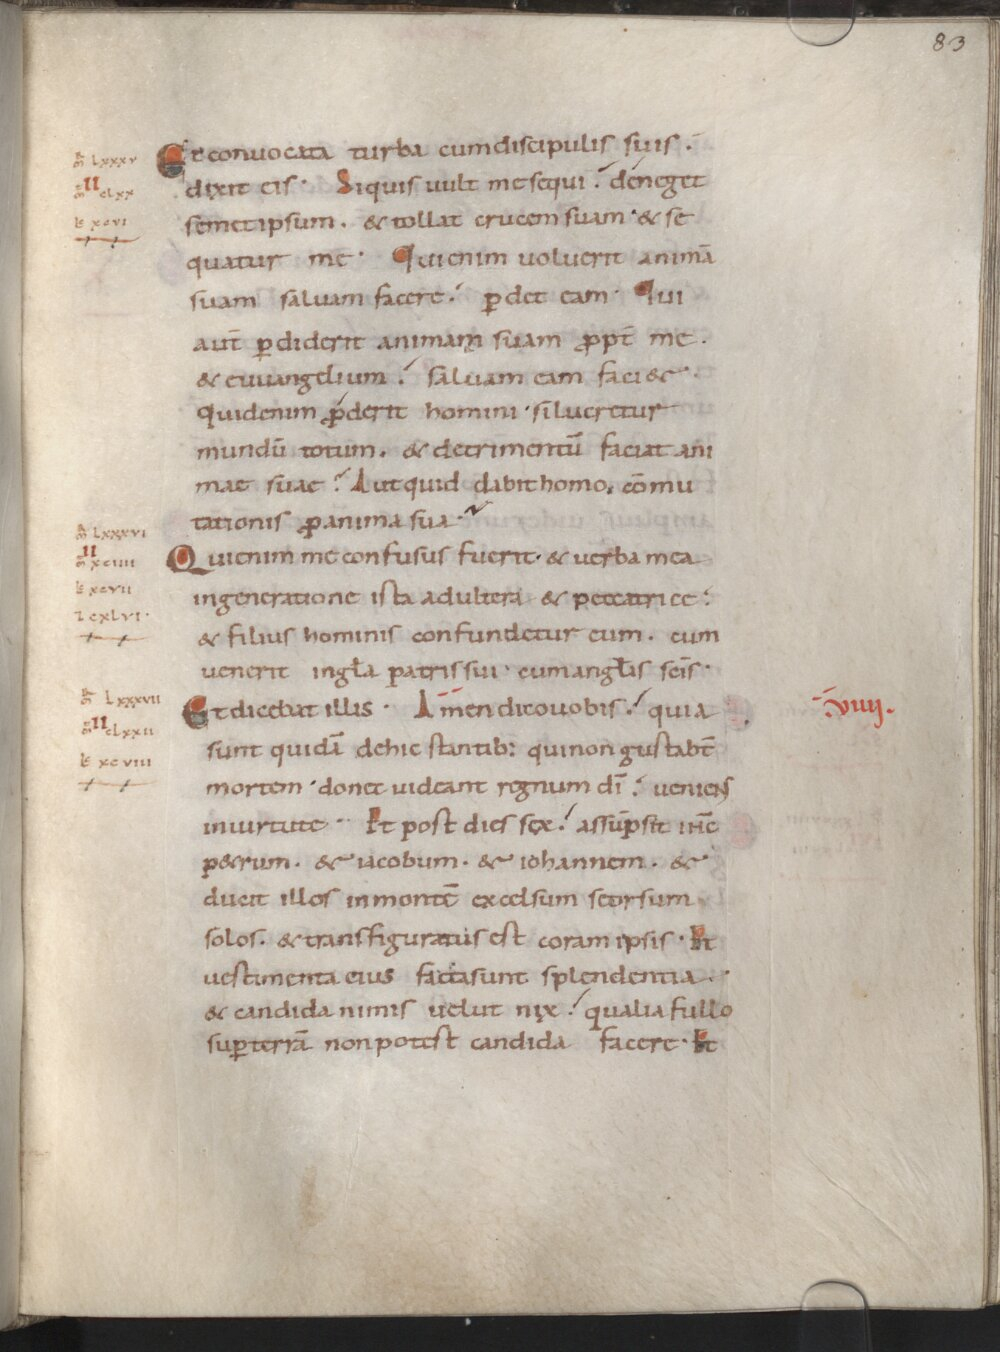 83
Et convocata turba cum discipulis suis .
dixit eis · Si quis vult me sequi ? deneget
semetipsum . & tollat crucem suam · & se
quatur me · Qui enim voluerit animā
suam salvam facere ? ꝑdet eam · Qui
aut̄ ꝑdiderit animam suam ꝓpt̄ me .
& evvangelium ? salvam eam faci&· 
Quid enim ꝓderit homini · si lucretur
mundū totum . & detrimentū faciat ani
mae suae ? Aut quid dabit homo . cōmu
tationis ꝓ anima sua ·
mr̄ Lxxxv
II
mt̄ cLxx
lc̄ xcvi
Qui enim me confusus fuerit · & verba mea
in generatione ista adultera & peccatrice ?
& filius hominis confundetur eum . cum
venerit in gl̄a patris sui · cum angl̄is sc̄is ·
mr̄ Lxxxvi
II
mt̄ xciiii
lc̄ xcvii
cxLvi ·
Et dicebat illis · Amen dico vobis ? quia
sunt quidā de hic stantib: qui non gustabt̄
mortem · donec videant regnum dī ? veniens
in virtute · Et post dies sex ? assūpsit ih̄c
p&rum . & iacobum . & iohannem . &
ducit illos in montē excelsum seorsum
solos . & transfiguratus est coram ipsis · Et
vestimenta eius facta sunt splendentia ·
& candida nimis velut nix ? qualia fullo
suꝑ terrā non potest candida facere · Et
mr̄ Lxxxvii
II
mt̄ cLxxii
lc̄ xcviii
viiii.